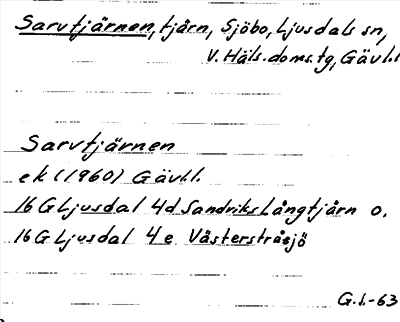 Sarvtjärnen, tjärn, Sjöbo, Ljusdals sn,
V. Häls. doms. tg, Gävl.l
Sarvtjärnen
ek (1960) Gävl.l.
16 G Ljusdal 4d Sandriks Långtjärn o.
16 G Ljusdal 4 e Västerstråsjö
G.l.-63